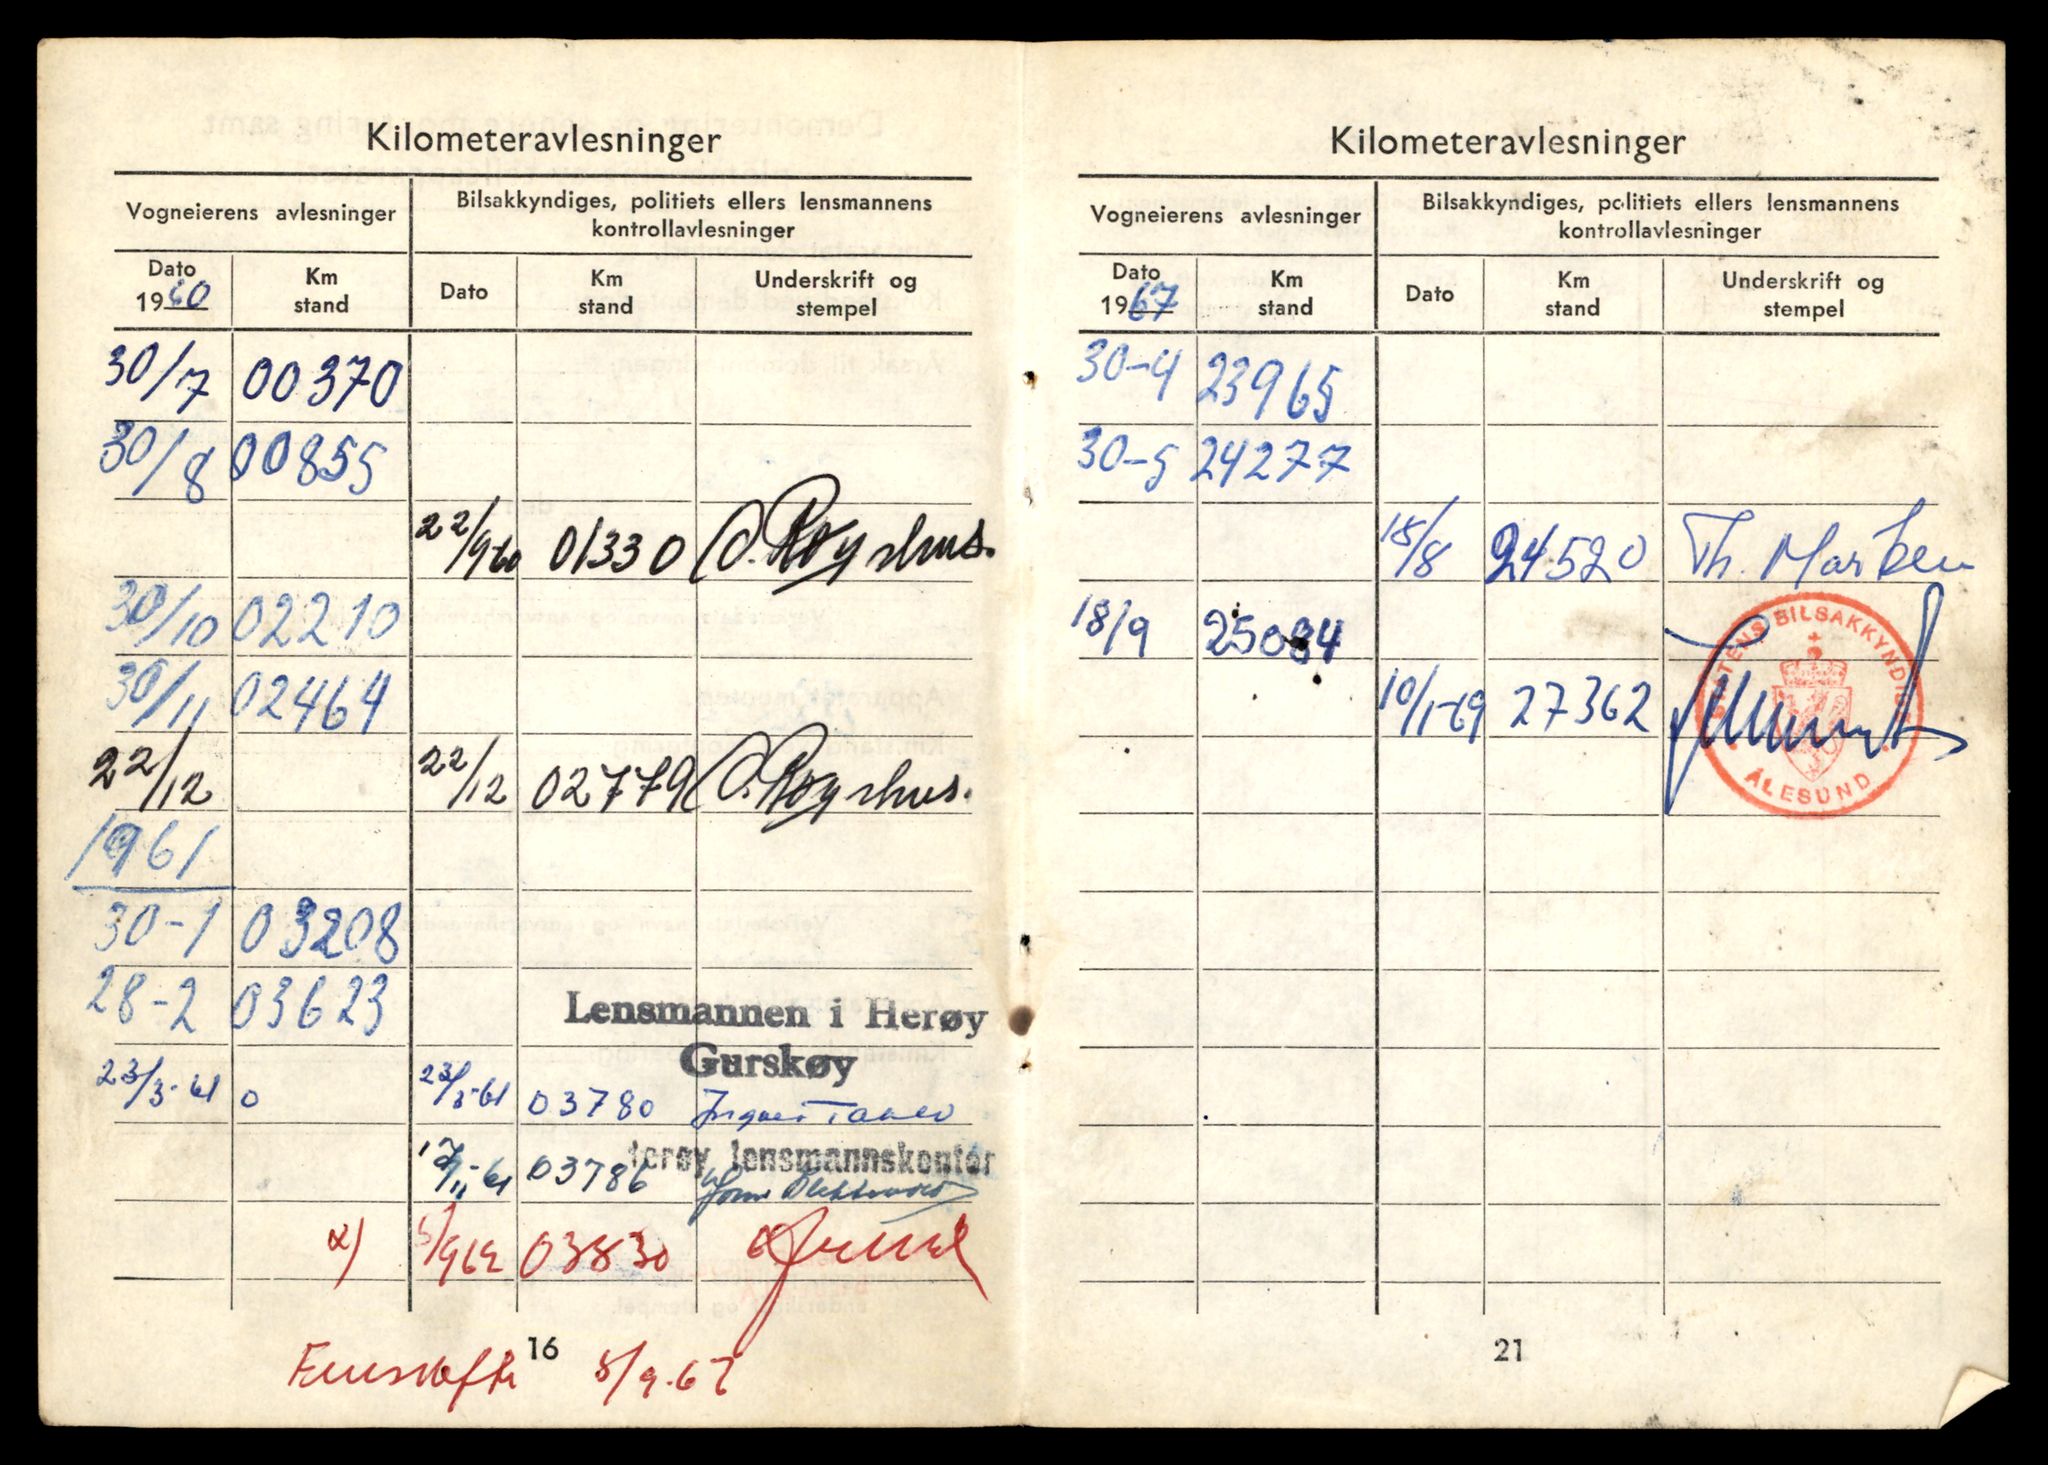 Kilometeravlesninger
Vogneierens avlesninger
Bilsakkyndiges, politiets ellers lensmannens
kontrollavlesninger
Dato
1960
Km
stand
Dato
Km
stand
Underskrift og
stempel
30/7 00370
30/8 00855
22/9 60 01330 O. Røyshus.
30/10 02210
30/11 02464
22/12 22/12 02779 O. Røyshus.
1961
30-1 03208
28-2 03623
Lensmannen i Herøy
Gurskøy
23/3-61 0 23/3-61 03780
erøy lensmannskontor
/11-61 03786
x) 5/9 62 03830
16
5/9.62
Kilometeravlesninger
Vogneierens avlesninger
Bilsakkyndiges, politiets ellers lensmannens
kontrollavlesninger
Dato
1967
Km
stand
Dato
Km
stand
Underskrift og
stempel
30-4 23965
30-5 24277
15/8 24520 Th. Marken
18/9 25084
10/1-69 27362
STATENS BILSAKKYNDIGE
ÅLESUND
21